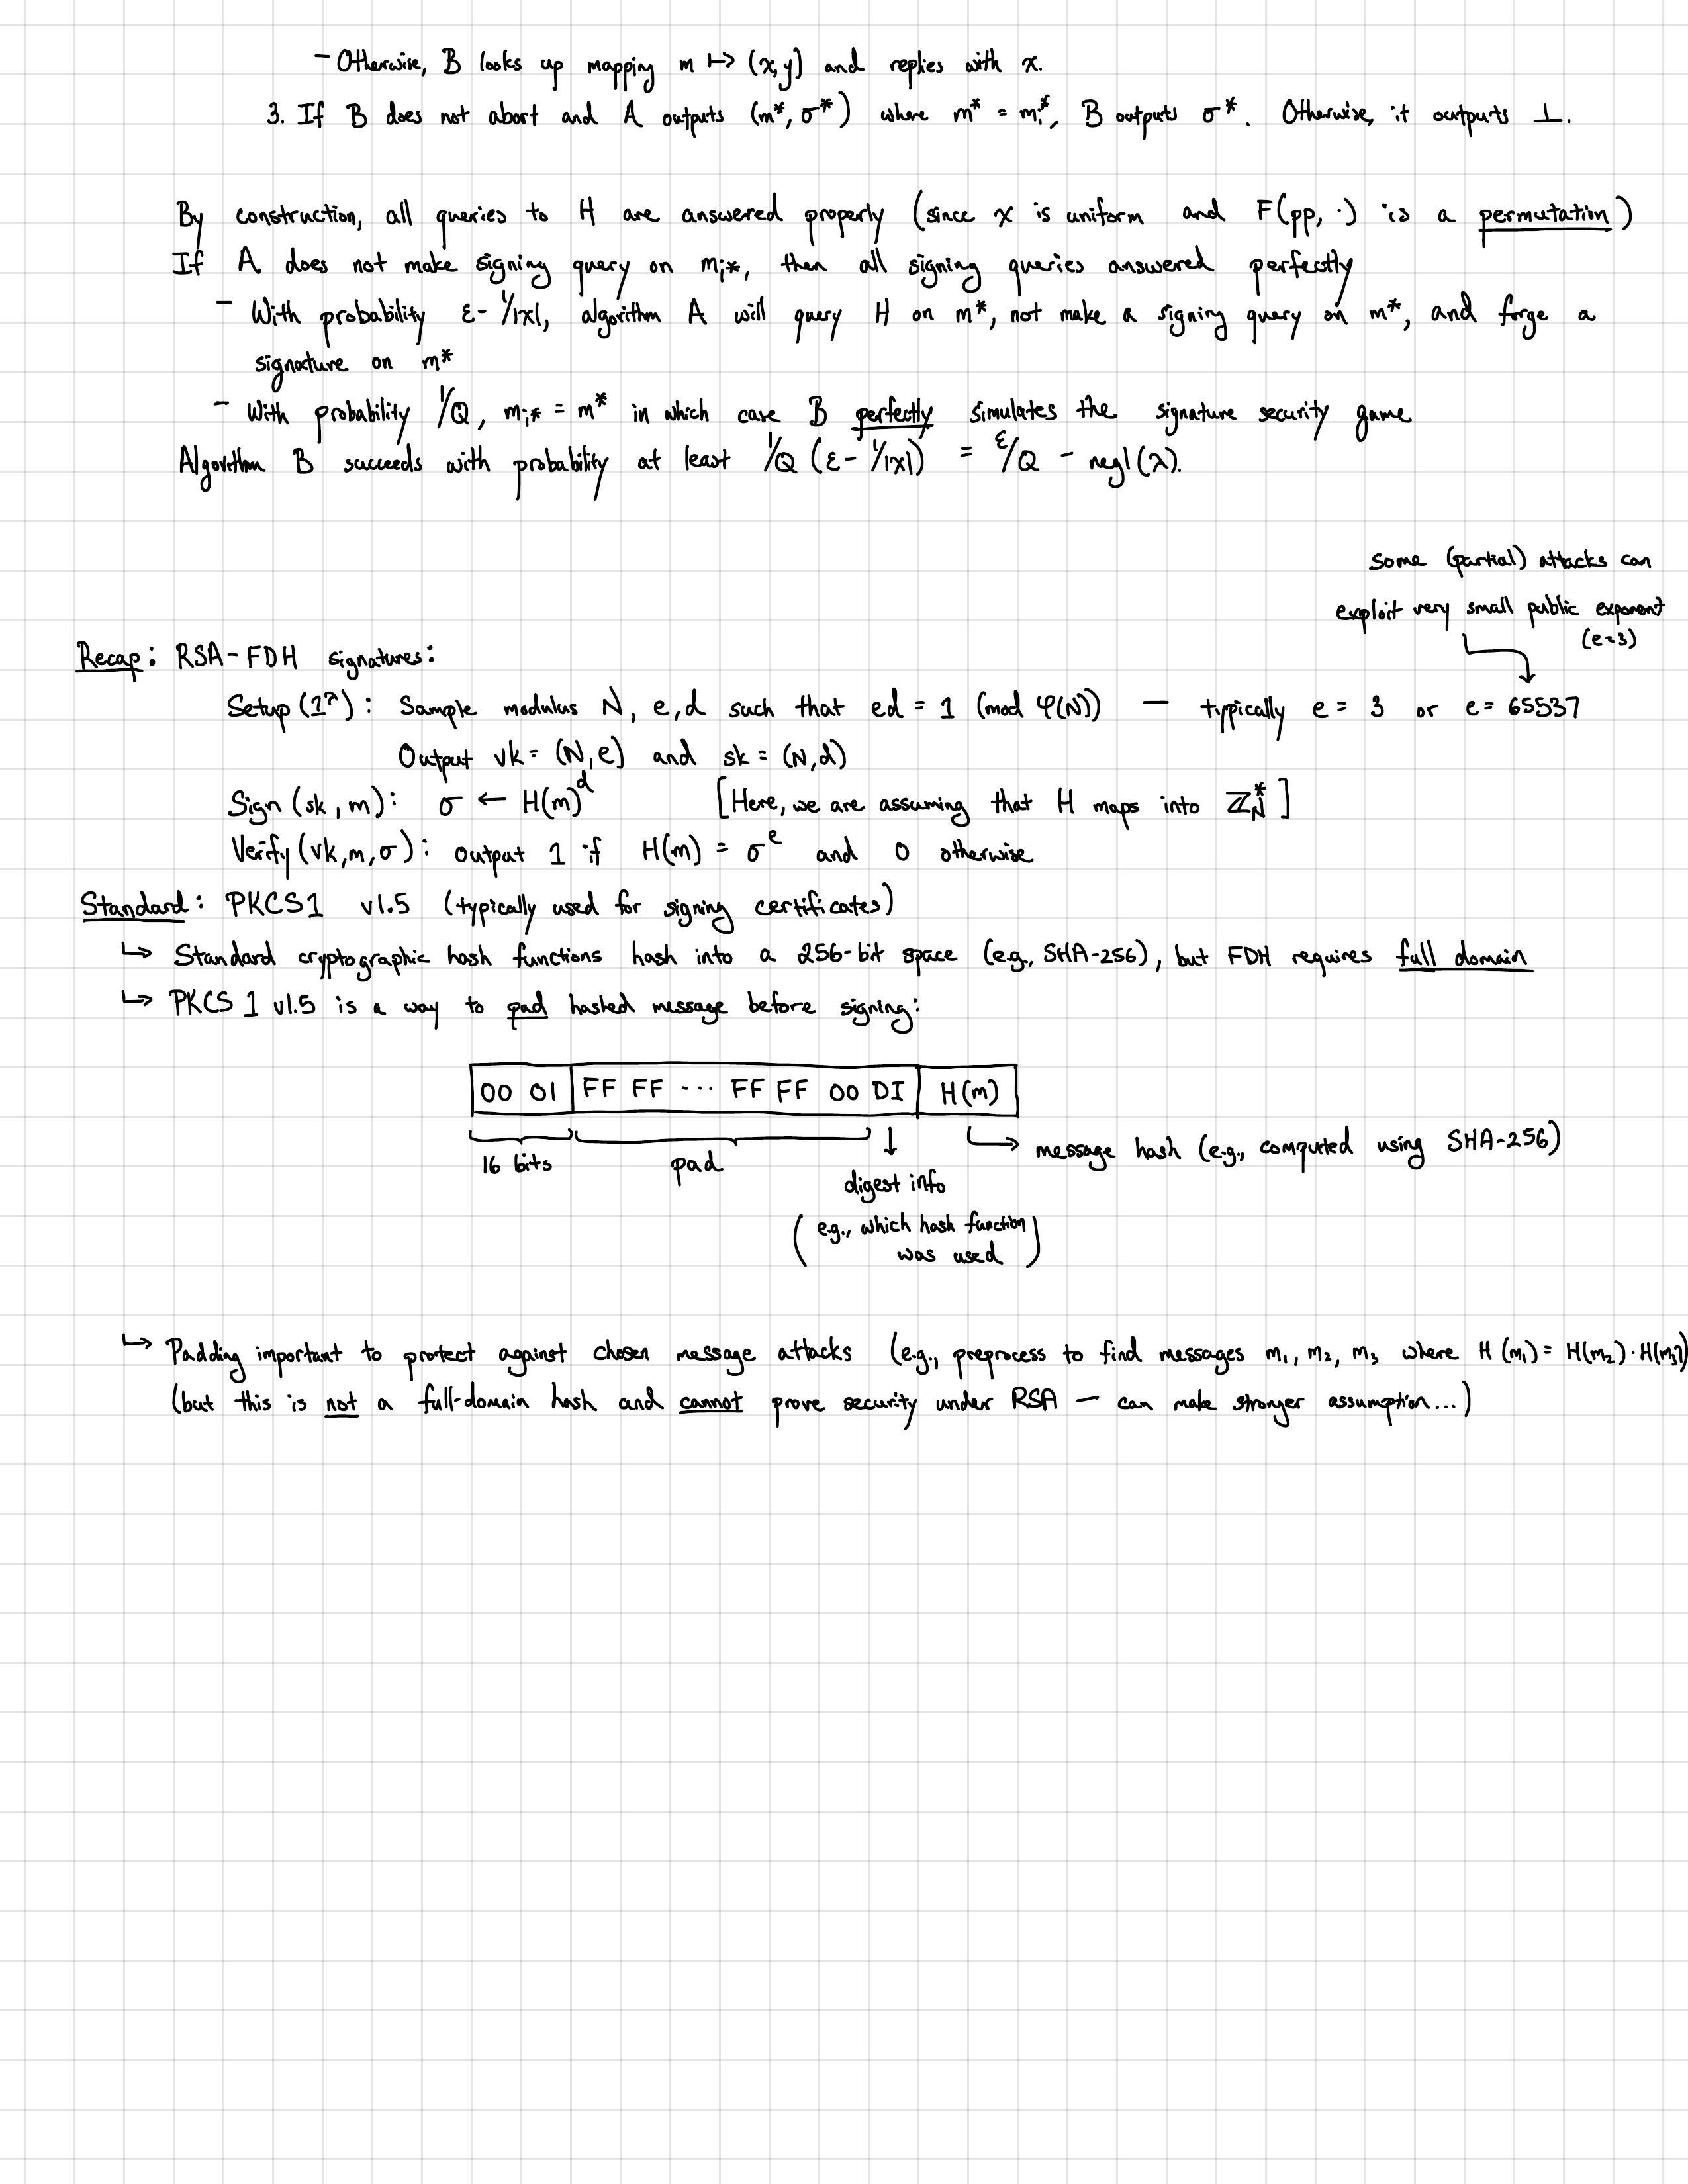 - Otherwise, B looks up mapping m ↦ (x,y) and replies with x.
3. If B does not abort and A outputs (m*, σ*) where m* = m_i*, B outputs σ*. Otherwise, it outputs ⊥.
By construction, all queries to H are answered properly (since x is uniform and F(pp, ·) is a permutation)
If A does not make signing query on m_i*, then all signing queries answered perfectly
- With probability ε - 1/|X|, algorithm A will query H on m*, not make a signing query on m*, and forge a
signature on m*
- With probability 1/Q, m_i* = m* in which case B perfectly simulates the signature security game
Algorithm B succeeds with probability at least 1/Q (ε - 1/|X|) = ε/Q - negl(λ).
Some (partial) attacks can
exploit very small public exponent
(e=3)
Recap: RSA-FDH signatures:
Setup(1^λ): Sample modulus N, e,d such that ed = 1 (mod φ(N)) — typically e = 3 or e = 65537
Output vk = (N,e) and sk = (N,d)
Sign(sk,m): σ ← H(m)^d [Here, we are assuming that H maps into ℤ_N^*]
Verify(vk,m,σ): output 1 if H(m) = σ^e and 0 otherwise
Standard: PKCS1 v1.5 (typically used for signing certificates)
↳ Standard cryptographic hash functions hash into a 256-bit space (e.g., SHA-256), but FDH requires full domain
↳ PKCS 1 v1.5 is a way to pad hashed message before signing:
00 01 FF FF ... FF FF 00 DI H(m)
16 bits pad ↓ message hash (e.g., computed using SHA-256)
digest info
(e.g., which hash function
was used)
↳ Padding important to protect against chosen message attacks (e.g., preprocess to find messages m₁, m₂, m₃ where H(m₁) = H(m₂)·H(m₃)
(but this is not a full-domain hash and cannot prove security under RSA — can make stronger assumption...)